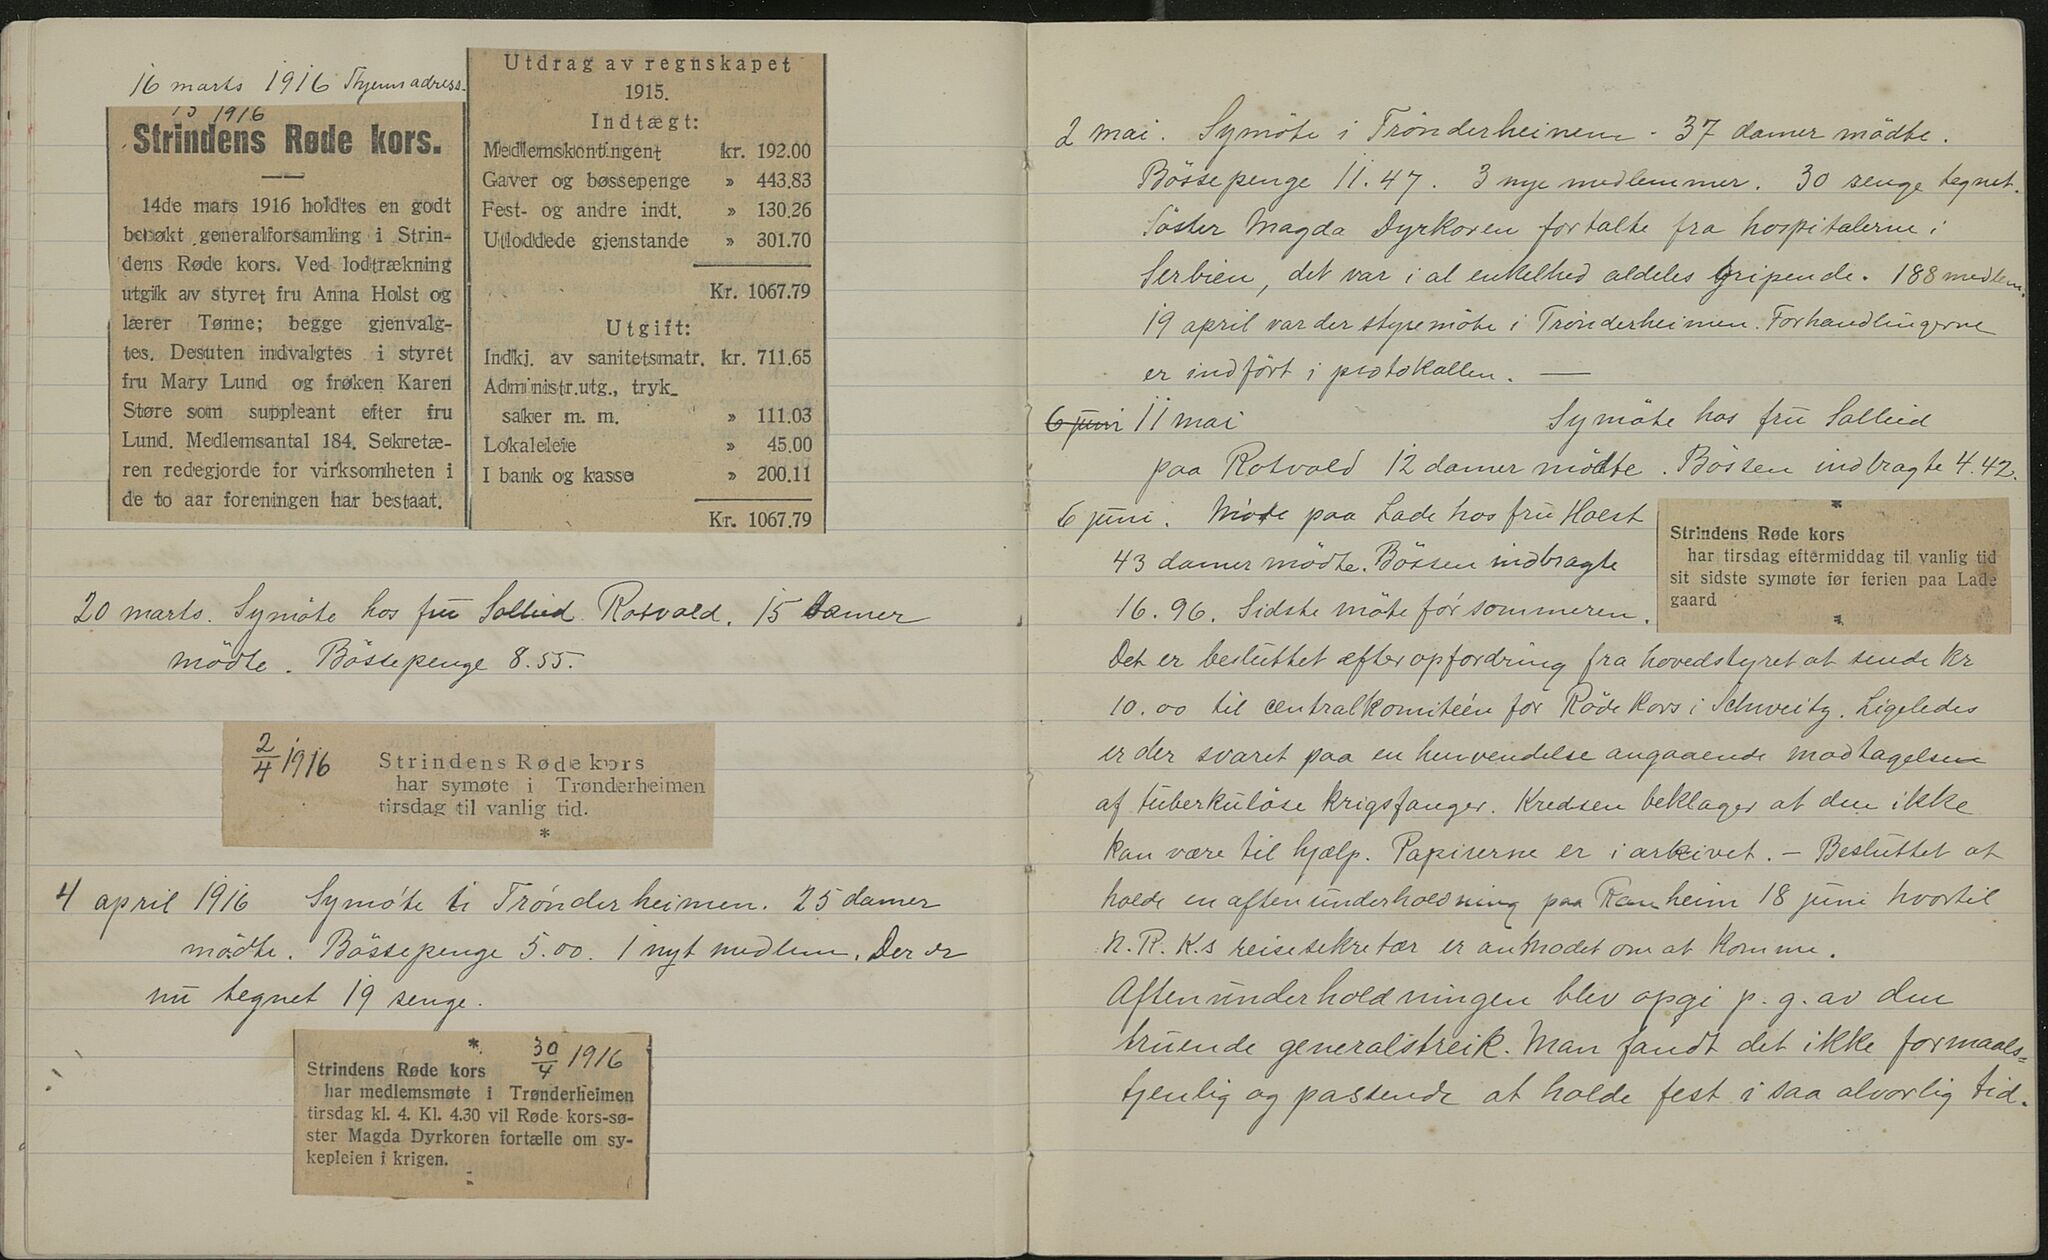 16 marts 1916
15 1916
Strindens Røde kors.
14de mars 1916 holdtes en godt
besøkt generalforsamling i Strin-
dens Røde kors. Ved lodtrækning
utgik av styret fru Anna Holst og
lærer Tønne; begge gjenvalg-
tes. Desuten indvalgtes i styret
fru Mary Lund og frøken Karen
Støre som suppleant efter fru
Lund. Medlemsantal 184. Sekretæ-
ren redegjorde for virksomheten i
de to aar foreningen har bestaat.
Utdrag av regnskapet
1915.
Indtægt:
Medlemskontingent kr. 192.00
Gaver og bøssepenge » 443.83
Fest- og andre indt. » 130.26
Utloddede gjenstande » 301.70
Kr. 1067.79
Utgift:
Indkj. av sanitetsmatr. kr. 711.65
Administr.utg., tryk-
saker m. m. » 111.03
Lokaleleie » 45.00
I bank og kasse » 200.11
Kr. 1067.79
20 marts. Symöte hos fru Sollied Rotvold. 15 damer
mödte. Bössepenge 8.55.
2/4 1916
Strindens Røde kors
har symøte i Trønderheimen
tirsdag til vanlig tid.
*
4 april 1916 Symöte i Trönderheimen. 25 damer
mödte. Bössepenge 5.00. 1 nyt medlem. Der er
nu tegnet 19 senge.
* 30/4 1916
Strindens Røde kors
har medlemsmøte i Trønderheimen
tirsdag kl. 4. Kl. 4.30 vil Røde kors-sø-
ster Magda Dyrkoren fortælle om sy-
kepleien i krigen.
2 mai. Symöte i Trönderheimen. 37 damer mödte.
Bössepenge 11.47. 3 nye medlemmer. 30 senge tegnet.
Söster Magda Dyrkoren fortalte fra hospitalerne i
Serbien, det var i al enkelhed aldeles gripende. 188 medlem.
19 april var der styremöte i Trönderheimen. Forhandlingerne
er indfört i protokollen. —
6 juni 11 mai Symöte hos fru Sollied
paa Rotvold 12 damer mödte. Bössen indbragte 4.42.
6 juni. Möte paa Lade hos fru Holst
43 damer mödte. Bössen indbragte
16.96. Sidste möte för sommeren.
*
Strindens Røde kors
har tirsdag eftermiddag til vanlig tid
sit sidste symøte før ferien paa Lade
gaard
*
Det er besluttet efter opfordring fra hovedstyret at sende kr
10.00 til centralkomitéen for Röde Kors i Schweitz. Ligeledes
er der svaret paa en henvendelse angaaende modtagelsen
af tuberkulöse krigsfanger. Kredsen beklager at den ikke
kan være til hjælp. Papirerne er i arkivet. — Besluttet at
holde en aftenunderholdning paa Ranheim 18 juni hvortil
N. R. K.s reisesekretær er anmodet om at komme.
Aftenunderholdningen blev opgi p. g. av den
truende generalstreik. Man fandt det ikke formaals=
tjenlig og passende at holde fest i saa alvorlig tid.